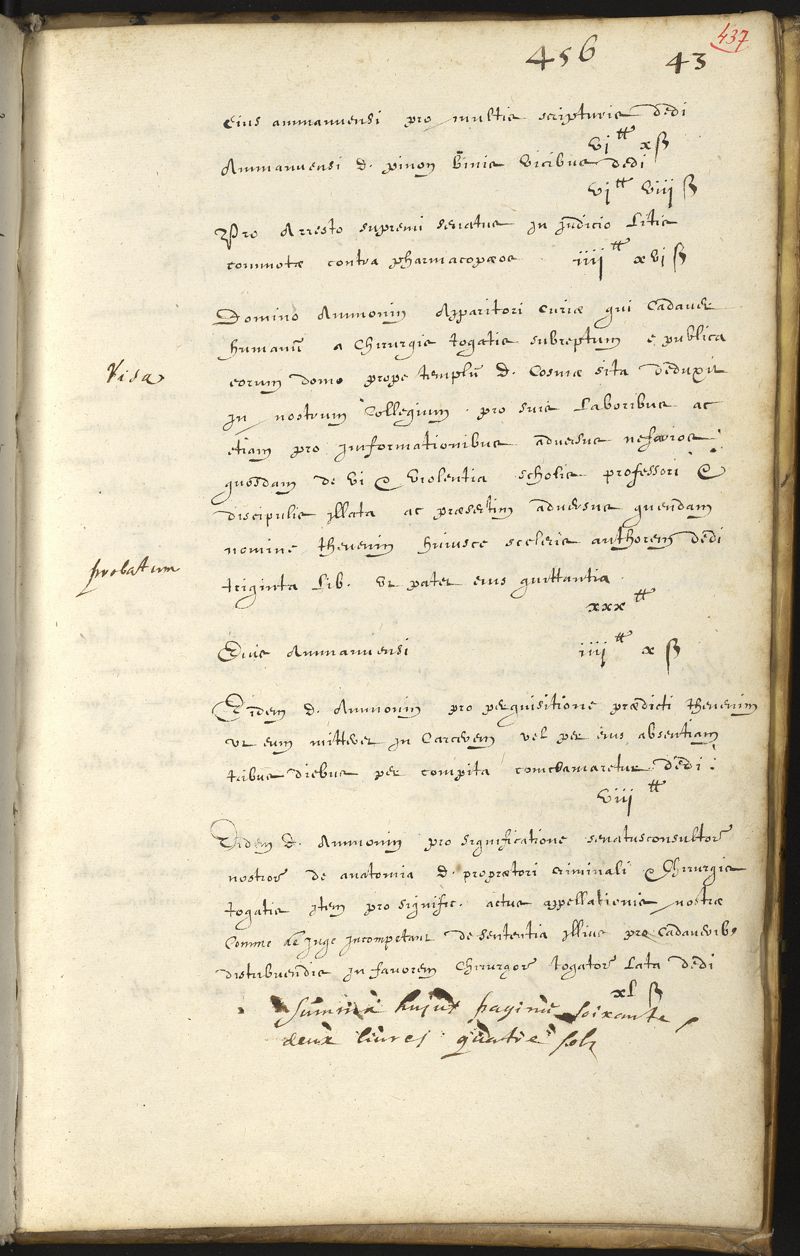 437
456 43
Eius ammanuensi pro multis scripturis dedi
vj ₶ x ß
Ammanuensi d. pinon binis vicibus dedi
vj ₶ viij ß
Pro Arresto supremi senatus in judicio Litis
commotæ contra pharmacopæos iiij ₶ xvj ß
Domino Ammonin Apparitori curiæ qui Cadauer
humanū a Chirurgis togatis subreptum e publica
Visa
eorum domo prope templū d. Cosmæ sita deduxit
in nostrum Collegium. pro suis Laboribus ac
etiam pro informationibus aduersus nefarios
quosdam de vi & violentia scholis professori &
discipulis illata ac præsertim aduersus quendam
nomine theuenin huiusce sceleris authorem dedi
probatum
triginta Lib. vt patet eius quittantia.
xxx ₶
Eius Ammanuensi iiij ₶ x ß
Eidem d. Ammonin pro perquisitione prædicti theuenin
vt eum mitteret in Carcerem vel per eius absentiam
tribus diebus per compita conclamaretur dedi:
viij ₶
Eidem d. Ammonin pro significatione senatusconsultorͬ
nostrorͬ de anatomia d. proprætori criminali & Chirurgis
togatis item pro signific. actus appellationis nostræ
Comme de Juge Incompetant de sententia illius pro Cadauerib9
distribuendis in fauorem Chirurgorͬ togatorͬ Lata dedi
xl ß
Summa hujus paginæ soixante
deux liures quatre solz